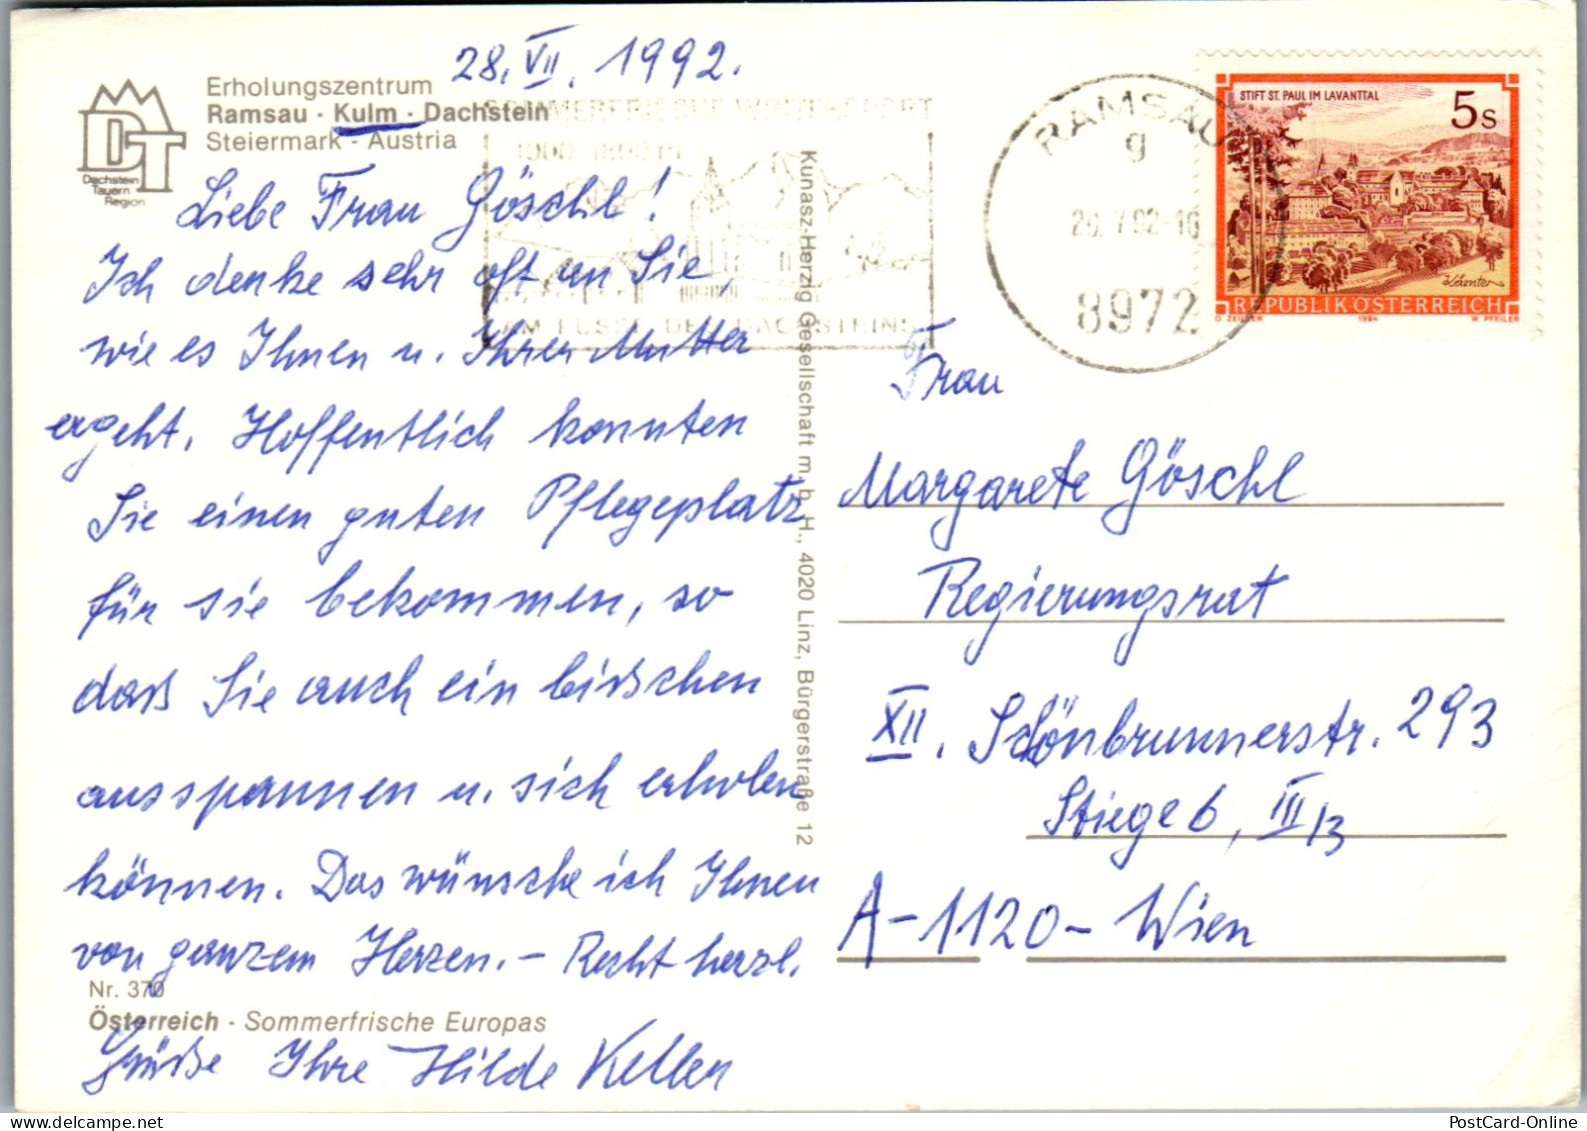 28. VII. 1992.
Erholungszentrum
Ramsau · Kulm · Dachstein
Steiermark - Austria
DT
Dachstein
Tauern
Region
SOMMERFRISCHE WINTERSPORT
AM FUSSE DES DACHSTEINS
RAMSAU
g
8972
STIFT ST. PAUL IM LAVANTTAL
5 S
Kärnten
REPUBLIK ÖSTERREICH
O. ZEILLER 1984 W. PFEILER
Liebe Frau Göschl!
Ich denke sehr oft an Sie,
wie es Ihnen u. Ihrer Mutter
ergeht. Hoffentlich konnten
Sie einen guten Pflegeplatz
für sie bekommen, so
daß Sie auch ein bißchen
ausspannen u. sich erholen
können. Das wünsche ich Ihnen
von ganzem Herzen. – Recht herzl.
Nr. 370
Österreich - Sommerfrische Europas
Grüße Ihre Hilde Keller
Kunasz-Herzig Gesellschaft m. b. H., 4020 Linz, Bürgerstraße 12
Frau
Margarete Göschl
Regierungsrat
XII. Schönbrunnerstr. 293
Stiege 6, III/3
A-1120-Wien
PostCard-Online